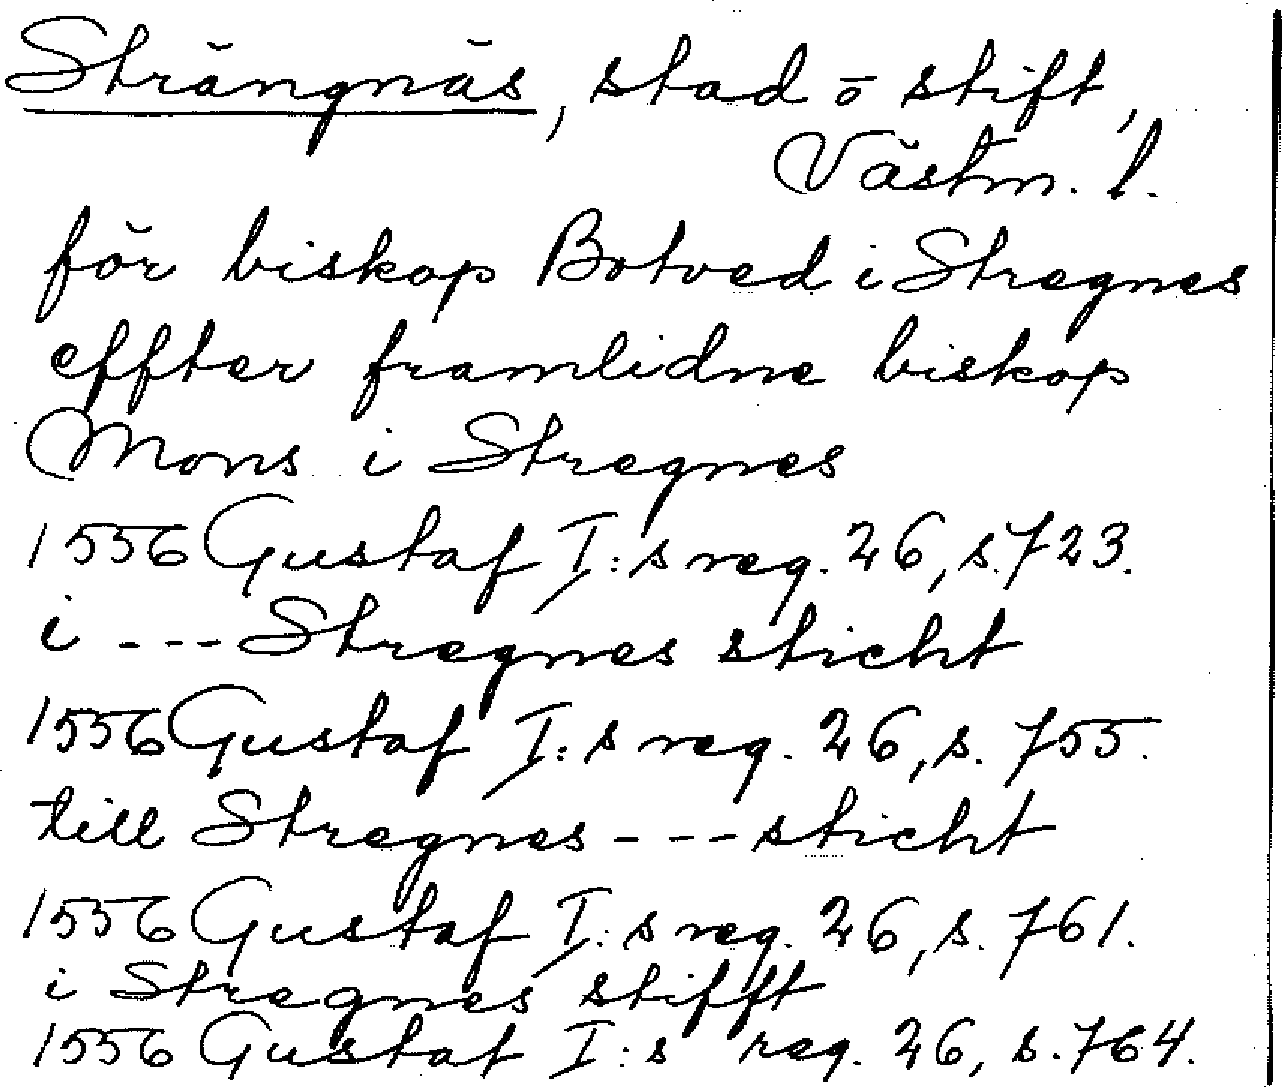 Strängnäs, stad o stift,
Västm. l.
för biskop Botved i Stregnes
effter framlidne biskop
Mons i Stregnes
1556 Gustaf I:s reg. 26, s. 723.
i --- Stregnes sticht
1556 Gustaf I:s reg. 26, s. 755.
till Stregnes --- sticht
1556 Gustaf I:s reg. 26, s. 761.
i Stregnes stifft
1556 Gustaf I:s reg. 26, s. 764.